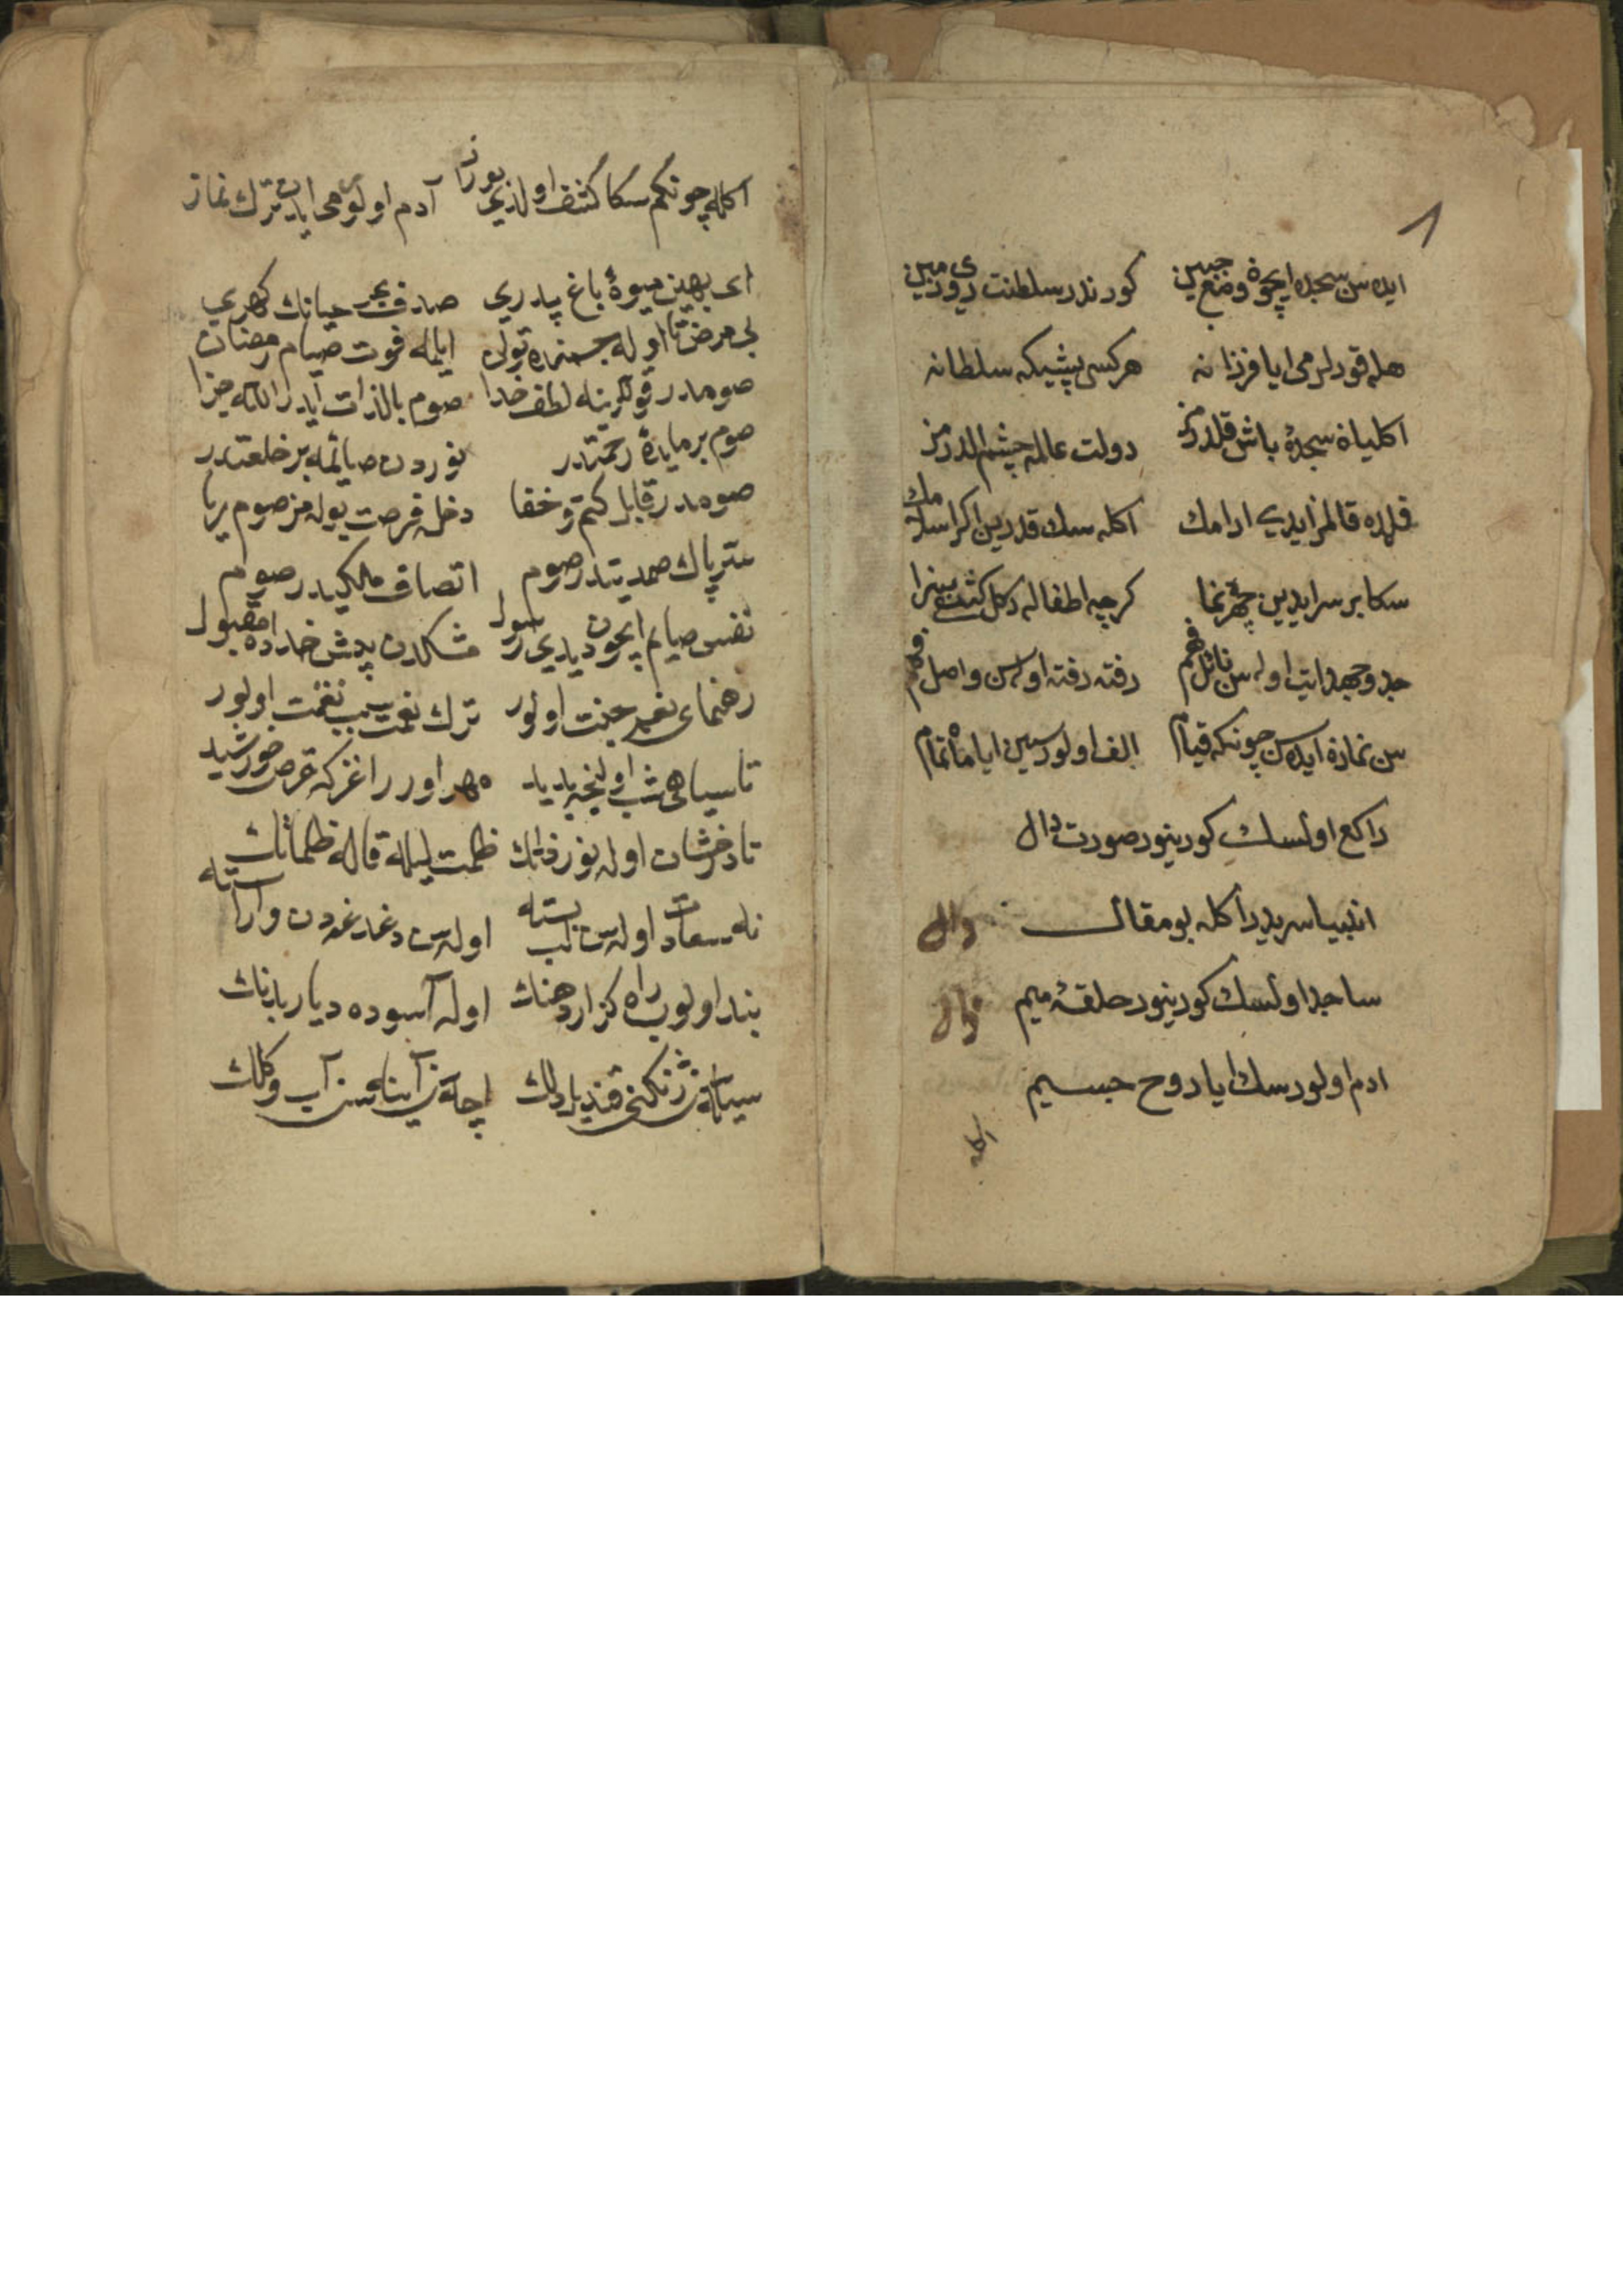 ايده سن سجده ايچون وضع جبين كورندر سلطنت روی زمين
هله قودلرمی ايا فرزانه هركسی پيشكه سلطانه
اكليانه سجدۀ باش قلدرمز دولت عالمه چشم الدرمز
قلمده قالمز ايدی ارامك اكله سك قدرين اكر اسلامك
سكا بر سر ايديين چهره نما كرچه اطفاله دكل كشف سزا
جد و جهد ايت اوله سن نائل فهم رفته رفته اوله سن واصل فهم
سن نمازه ايده سن چونكه قيام الف اولورسين ايا ماه تمام
راكع اولسك كورينور صورت دال
انبيا سريدر اكله بو مقال دال
ساجد اولسك كورينور حلقۀ ميم
ادم اولورسك ايا روح جسيم
اكله
اكله چونكم سكا كشف اولدی بو راز آدم اولور می ايدن ترك نماز
ای بهين ميوۀ باغ پدری صدف بحر حياتك كهری
بی مرض تا اوله جسمنده توان ايلمه فوت صيام رمضان
صومدر قوللرينه لطف خدا صوم بالذات ايدر الله جزا
صوم بر مايدۀ رحمتدر نوردن صائمه بر خلعتدر
صومدر قابل كتم و خفا دخله فرصت بوله مز صوم ريا
ستر پاك صمديتدر صوم اتصاف ملكيدر صوم
نفس صايم ايچون ديدی رسول مشكدن پيش خداده مقبول
رهنمای نعم جنت اولور ترك نعمت سبب نعمت اولور
تا سياهی شب اولنجه پديد مهر اورر اغزكه قرص خورشيد
تا درخشان اوله نور ذاتك ظلمت ليله قاله ظلماتك
نه سعادت اوله سن لب بسته اوله سن دغدغه دن وارسته
بند اولوب راه كزار دهنك اوله آسوده ديار بدنك
سيله سن ژنكنی قنديل دلك اچه سن آيينه سن آب و كلك